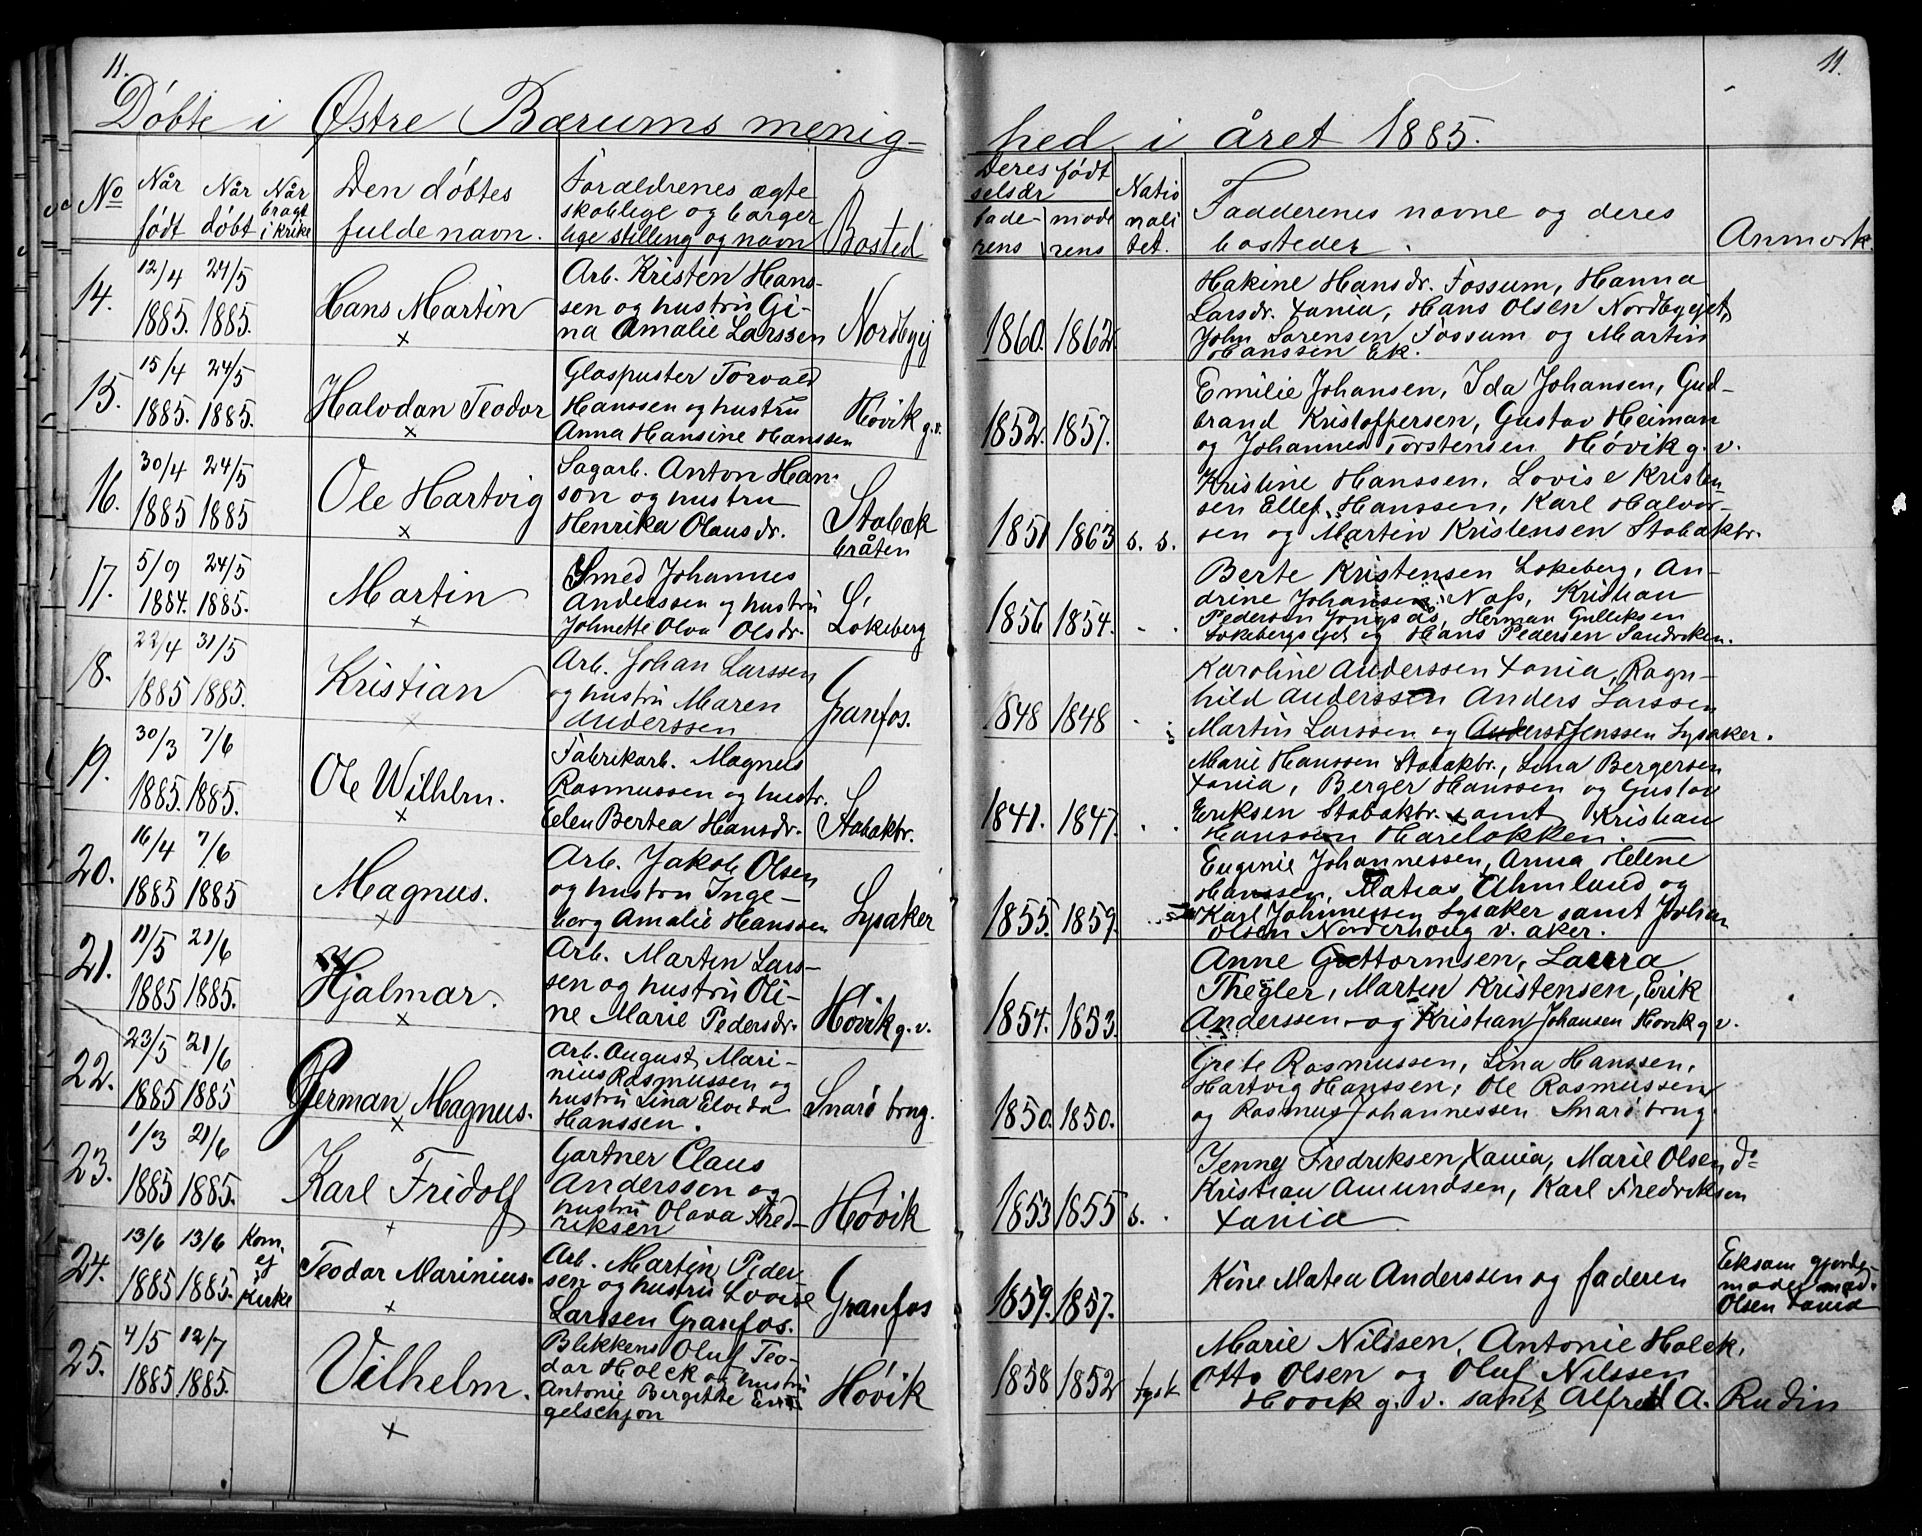 11.
11.
Døbte i Østre Bærums menig-
hed i året 1885.
No
Når født
Når døbt
Når bragt i kirke
Den døbtes fulde navn.
Forældrenes ægte
skablige og borger
lige stilling og navn
Bosted
Deres fødselsår
faderens
moderens
Natio
nali
tet.
Faddernes navne og deres
bosteder.
Anmærk.
14.
12/4 1885.
24/5 1885.
Hans Martin
Arb. Kristen Hans-
sen og hustru Gi-
na Amalie Larssen
Nordbyej
1860. 1862.
Hakine Hansdr. Fossum, Hanna
Larsdr. Xania, Hans Olsen Nordbyejet,
John Sørensen Fossum og Martin
Hanssen Ek.
15.
15/4 1885.
24/5 1885.
Halvdan Teodor
Glaspuster Torvald
Hanssen og hustru
Anna Hansine Hanssen
Høvik g.v.
1852. 1857.
Emilie Johansen, Ida Johansen, Gud-
brand Kristoffersen, Gustav Heiman
og Johannes Torstensen Høvik g. v.
16.
30/4 1885
24/5 1885
Ole Hartvig
Sagarb. Anton Han-
son og hustru
Henrika Olausdr.
Stabæk
bråten
1851 1863 s. s.
Kristine Hanssen, Lovise Kristen-
sen Ellef Hanssen, Karl Halvor-
sen og Martin Kristensen Stabækbr.
17.
5/9 1884.
24/5 1885.
Martin
Smed Johannes
Anderssen og hustru
Johnette Olva Olsdr.
Løkeberg
1856 1854.
Berte Kristensen Løkeberg, An-
drine Johansen Næs, Kristian
Pedersen Jongsås, Herman Gulleksen
Løkebergsejet og Hans Pedersen Sandviken.
18.
22/4 1885
31/5 1885.
Kristian
Arb. Johan Larssen
og hustru Maren
Anderssen
Granfos.
1848 1848
Karoline Anderssen Xania, Ragn-
hild Anderssen Anders Larssen
Martin Larssen og Anders Jenssen Lysaker.
19.
30/3 1885.
7/6 1885.
Ole Wilhlm.
Fabrikarb. Magnus
Rasmussen og hustr.
Elen Bertea Hansdr.
Stabækbr.
1841. 1847.
Marie Hanssen Stabækbr., Lina Bergersen
Xania, Berger Hanssen og Gustav
Eriksen Stabækbr. samt Kristian
Hanssen Hareløkken.
20.
16/4 1885
7/6 1885
Magnus.
Arb. Jakob Olsen
og hustru Inge-
borg Amalie Hanssen
Lysaker
1855. 1859.
Eugenie Johannessen, Anna Helene
Hanssen, Matias Almlund og
Karl Johannessen Lysaker samt Johan
Olsen Norderhoug v. aker.
21.
11/5 1885
21/6 1885.
Hjalmar.
Arb. Martin Lars-
sen og hustru Oli-
ne Marie Pedersdr.
Høvik g. v.
1854. 1853.
Anne Guttormsen, Laura
Thegler, Martin Kristensen, Erik
Anderssen og Kristian Johansen Høvik g v.
22.
23/5 1885
21/6 1885
Herman Magnus.
Arb. August Mari-
nius Rasmussen og
hustru Lina Elveda
Hanssen.
Snarø brug.
1850. 1850.
Grete Rasmussen, Lina Hanssen,
Hartvig Hanssen, Ole Rasmussen
og Rasmus Johannessen Snarø brug.
23.
1/3 1885
21/6 1885.
Karl Fridolf
Gartner Claus
Andersson og
hustru Olava Fred-
riksen
Høvik
1853 1855 s.
Jenny Fredriksen Xania, Marie Olsen do
Kristian Amundsen, Karl Fredriksen
Xania
24.
13/6 1885
13/6 1885.
Kom.
ej
i
Kirke
Teodor Marinius.
Arb. Martin Peder-
sen og hustru Lovise
Larssen Granfos.
Granfos
1859. 1857.
Kine Matea Anderssen og faderen
Eksam gjorde-
moder mad.
Olsen Xania
25.
4/5 1885
12/7 1885.
Vilhelm.
Blikkensl. Oluf Teo-
dor Holck og hustru
Antonie Bergitte En-
gelschjøn
Høvik
1858 1852 tysk
Marie Nilssen, Antonie Holck,
Otto Olsen og Oluf Nilssen
Høvik g. v. samt Alfred A. Rudin